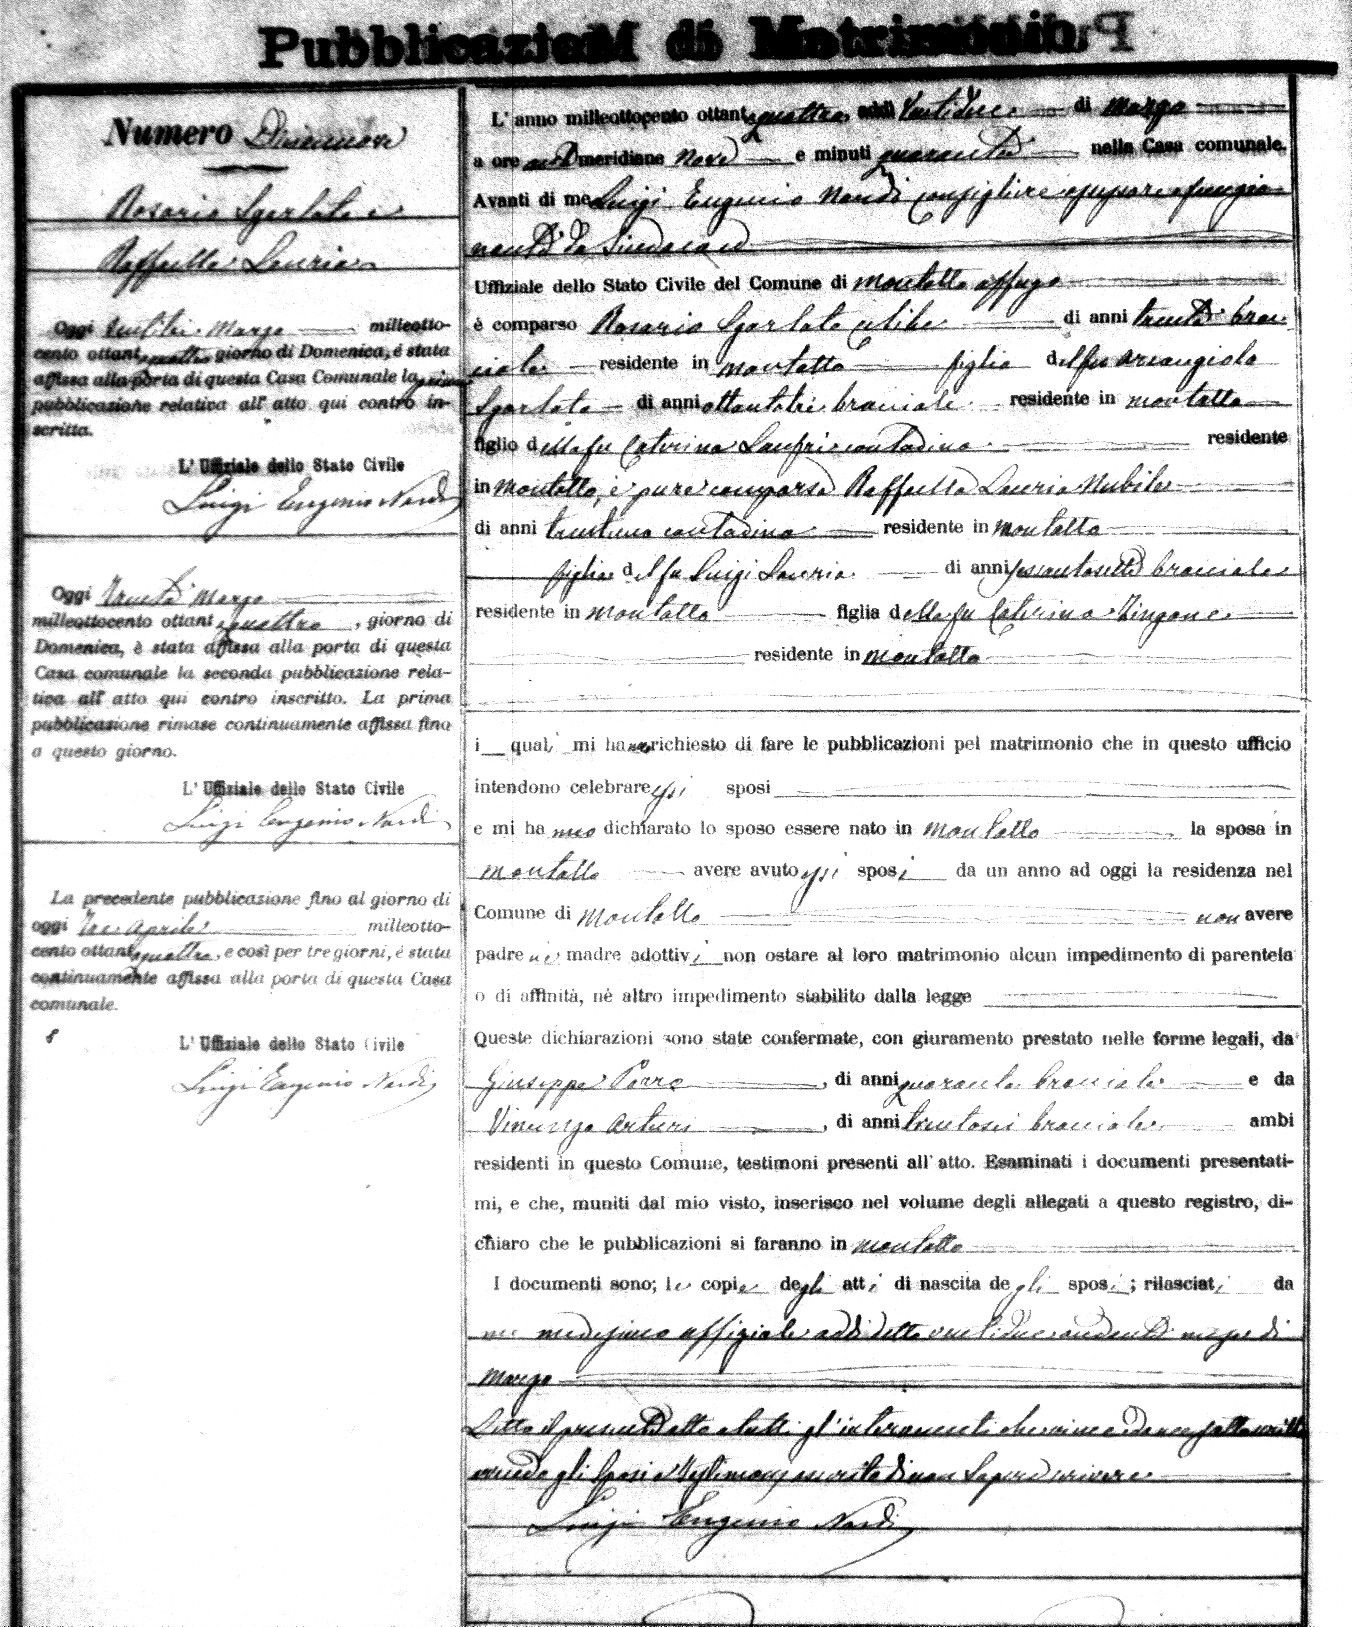 Pubblicazioni di Matrimonio
Numero Diciannove
Rosario Sgarlata e
Raffaella Lauria
Oggi ventitre Marzo milleotto-
cento ottantaquattro giorno di Domenica, é stata
affissa alla porta di questa Casa Comunale la prima
pubblicazione relativa all' atto qui contro in-
scritta.
L' Uffiziale dello Stato Civile
Luigi Eugenio Nardi
Oggi trenta Marzo
milleottocento ottantaquattro, giorno di
Domenica, è stata affissa alla porta di questa
Casa comunale la seconda pubblicazione rela-
tiva all' atto qui contro inscritto. La prima
pubblicazione rimase continuamente affissa fino
a questo giorno.
L' Uffiziale dello Stato Civile
Luigi Eugenio Nardi
La precedente pubblicazione fino al giorno di
oggi tre Aprile milleotto-
cento ottantaquattro, e così per tre giorni, é stata
continuamente affissa alla porta di questa Casa
comunale.
L' Uffiziale dello Stato Civile
Luigi Eugenio Nardi
L' anno milleottocento ottantaquattro, addì ventidue di marzo
a ore antimeridiane nove e minuti quaranta nella Casa comunale.
Avanti di me Luigi Eugenio Nardi Consigliere assessore funzio
nante da Sindaco
Uffiziale dello Stato Civile del Comune di Montalto Uffugo
è comparso Rosario Sgarlata celibe di anni trenta brac
ciale residente in Montalto figlio del fu Arcangiolo
Sgarlata di anni ottantatre bracciale residente in Montalto
figlio della fu Caterina contadina residente
in Montalto, è pure comparsa Raffaella Lauria Nubile
di anni trentuno contadina residente in Montalto
figlia del fu Luigi Lauria di anni sessantasette bracciale
residente in Montalto figlia della fu Caterina Zingone
residente in Montalto
i quali mi hanno richiesto di fare le pubblicazioni pel matrimonio che in questo ufficio
intendono celebrare essi sposi
e mi hanno dichiarato lo sposo essere nato in Montalto la sposa in
Montalto avere avuto essi sposi da un anno ad oggi la residenza nel
Comune di Montalto non avere
padre nè madre adottivi non ostare al loro matrimonio alcun impedimento di parentela
o di affinità, nè altro impedimento stabilito dalla legge
Queste dichiarazioni sono state confermate, con giuramento prestato nelle forme legali, da
Giuseppe Porro, di anni quaranta bracciale e da
Vincenzo Arturi, di anni trentasei bracciale ambi
residenti in questo Comune, testimoni presenti all' atto. Esaminati i documenti presentati-
mi, e che, muniti dal mio visto, inserisco nel volume degli allegati a questo registro, di-
chiaro che le pubblicazioni si faranno in Montalto
I documenti sono; le copie degli atti di nascita degli sposi; rilasciati da
me medesimo uffiziale addì detto ventidue andante mese di
Marzo
Letto il presente atto a tutti gl'intervenuti che viene da me sottoscritto
avendo gli sposi e testimoni asserito di non sapere scrivere
Luigi Eugenio Nardi